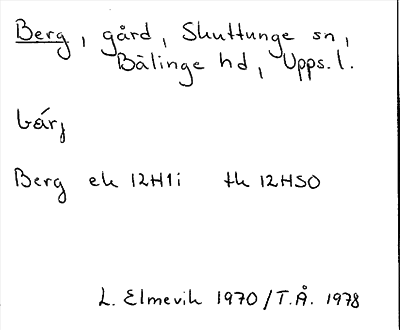 Berg, gård, Skuttunge sn,
Bälinge hd, Upps.l.
bárj
Berg ek 12H1i tk 12HSO
L. Elmevik 1970/T.Å. 1978